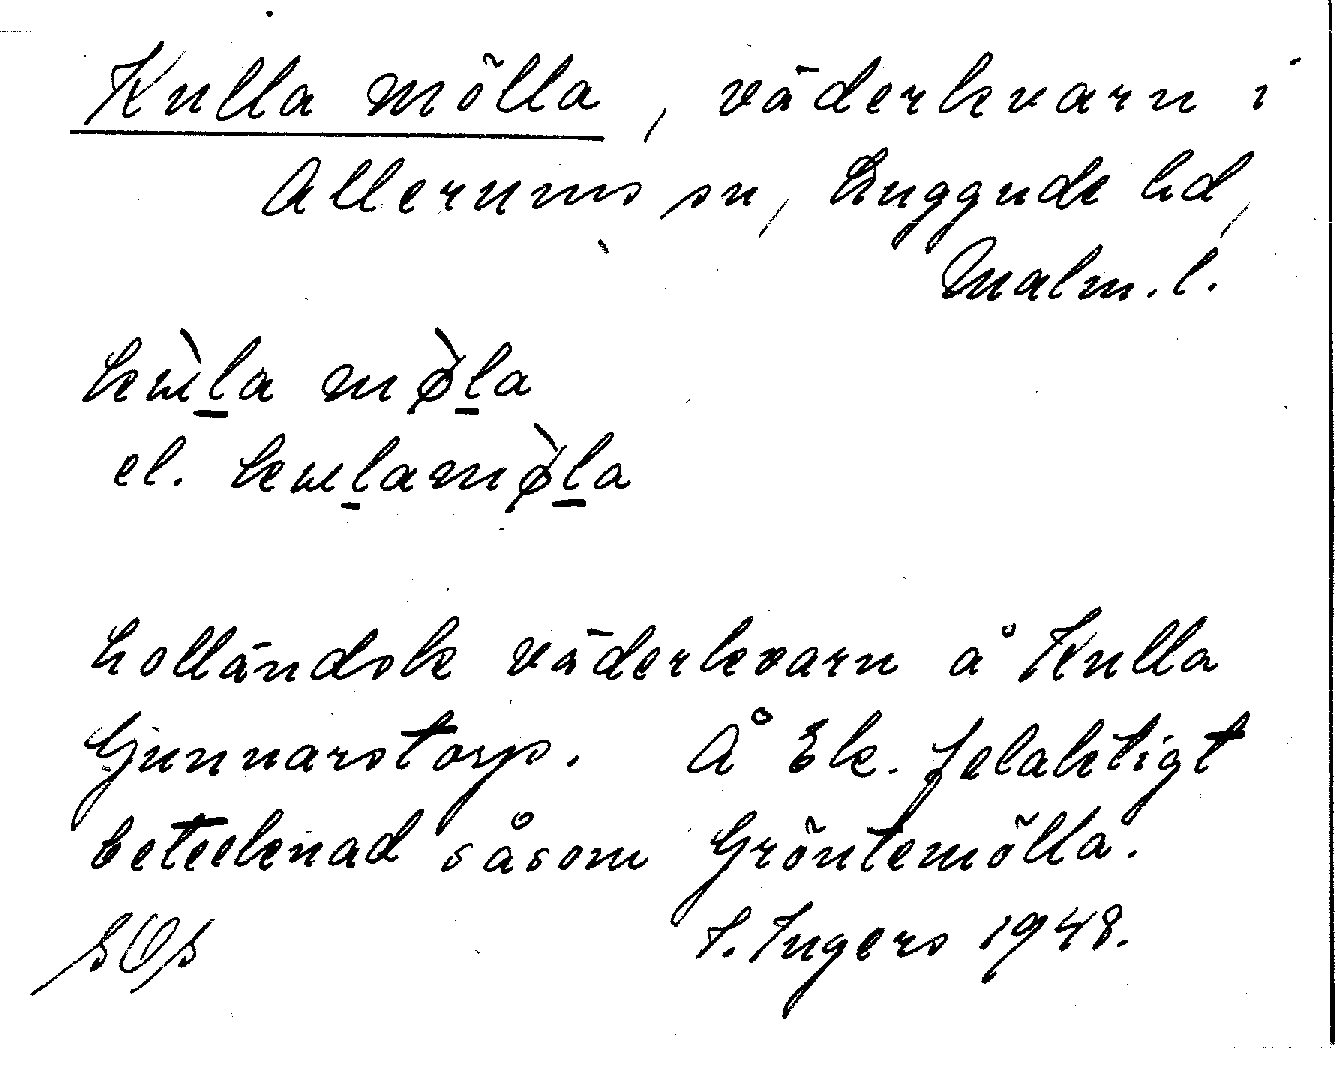 Kulla mölla, väderkvarn i
Allerums sn, Luggude hd,
Malm.l.
el.
holländsk väderkvarn å Kulla
Gunnarstorp. Å Ek. felaktigt
betecknad såsom Gröntemölla.
I. Ingers 1948.